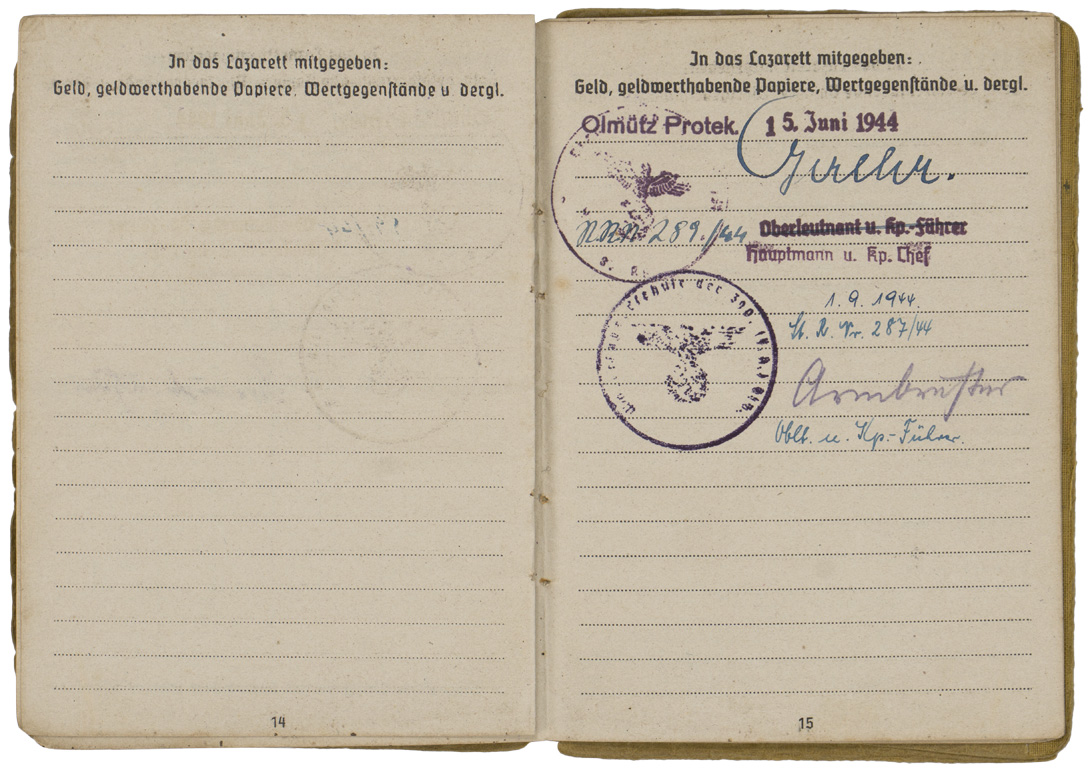 In das Lazarett mitgegeben:
Geld, geldwerthabende Papiere, Wertgegenstände u. dergl.
14
In das Lazarett mitgegeben:
Geld, geldwerthabende Papiere, Wertgegenstände u. dergl.
Olmütz Protek. 15. Juni 1944
289./44
Oberleutnant u. Kp.-Führer
Hauptmann u. Kp. Chef
der 390.
1. 9. 1944.
St. R. Nr. 287/44
Armbruster
Oblt. u. Kp.-Führer.
15